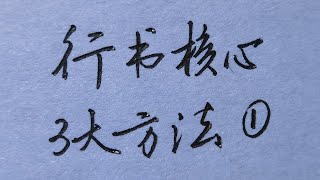 行书核心
3大方法①